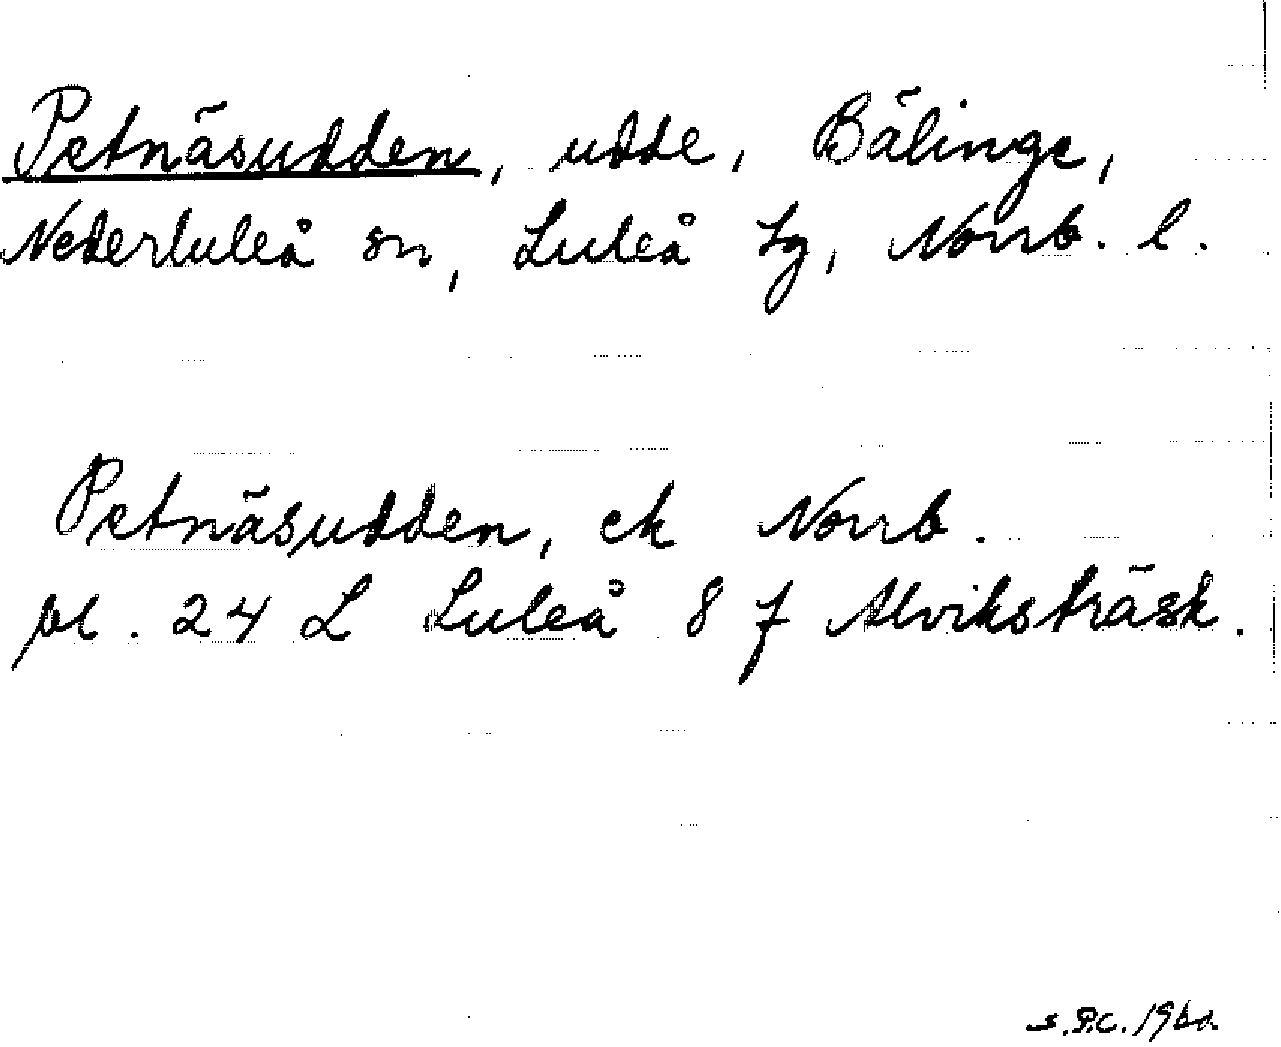 Petnäsudden, udde, Bälinge,
Nederluleå sn, Luleå tg, Norrb. l.
Petnäsudden, ek Norrb.
bl. 24 L Luleå 8 f Alviksträsk.